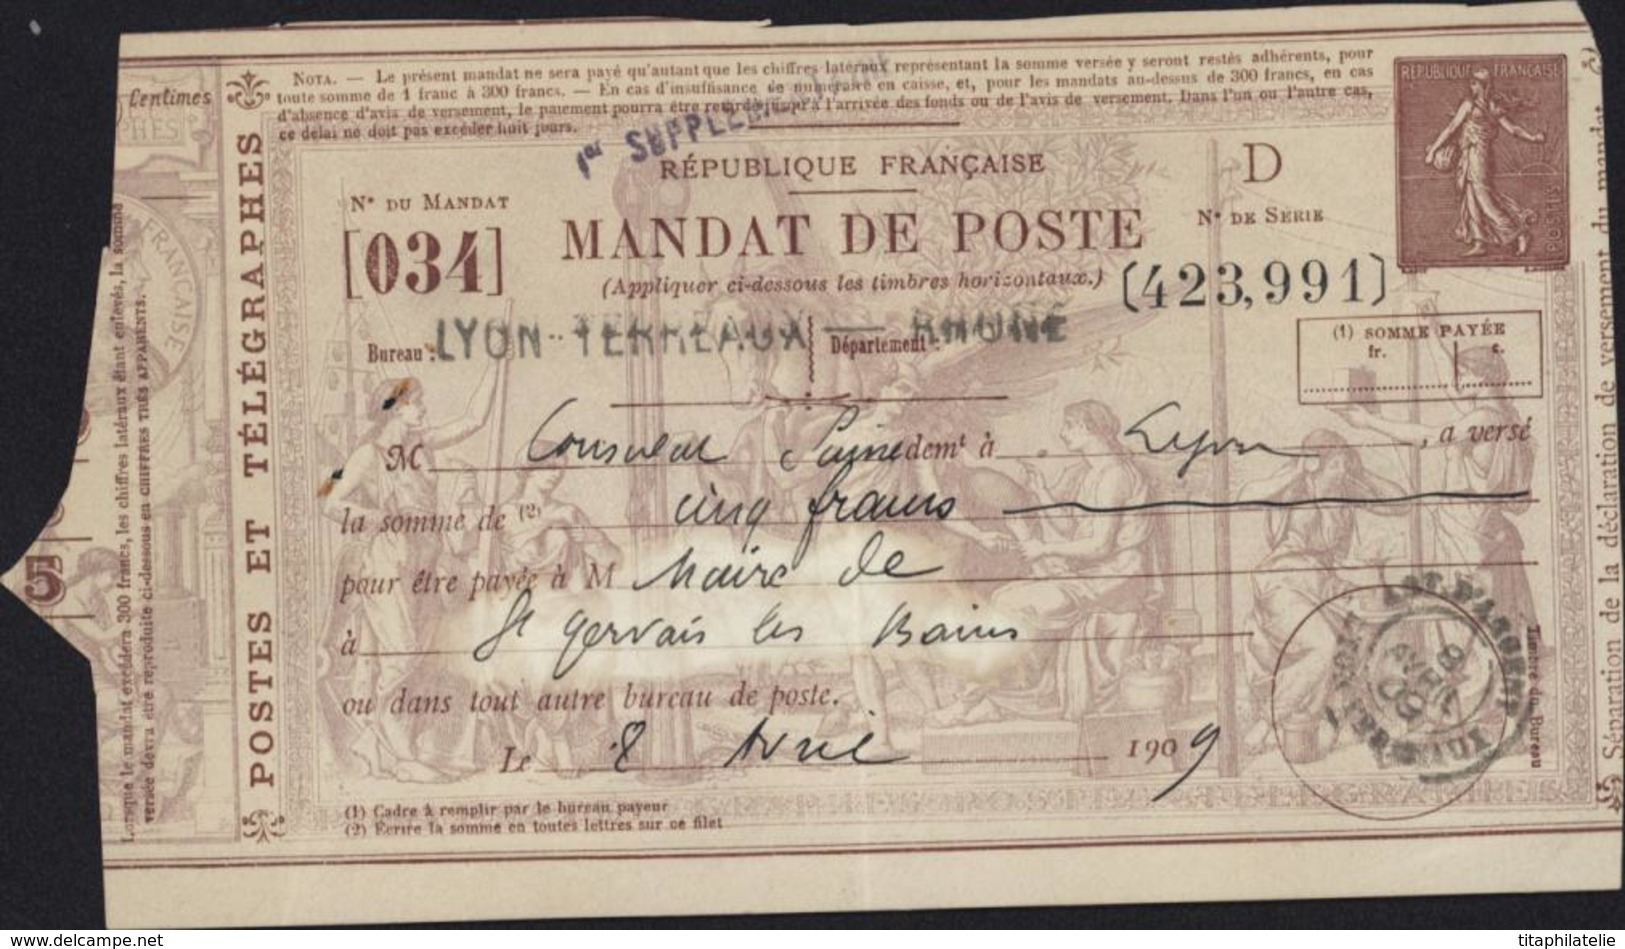 NOTA. — Le présent mandat ne sera payé qu'autant que les chiffres latéraux représentant la somme versée y seront restés adhérents, pour
toute somme de 1 franc à 300 francs. — En cas d'insuffisance de numéraire en caisse, et, pour les mandats au-dessus de 300 francs, en cas
d'absence d'avis de versement, le paiement pourra être retardé jusqu'à l'arrivée des fonds ou de l'avis de versement. Dans l'un ou l'autre cas,
ce délai ne doit pas excéder huit jours.
Centimes
1er SUPPLÉMENTAIRE
RÉPUBLIQUE FRANÇAISE
POSTES
RÉPUBLIQUE FRANÇAISE
D
N° DU MANDAT
[034]
MANDAT DE POSTE
N° DE SÉRIE
(Appliquer ci-dessous les timbres horizontaux.)
(423,991)
Bureau : LYON-TERREAUX — Département : RHONE
(1) SOMME PAYÉE
fr. c.
M Consulat Suisse demt à Lyon, a versé
la somme de (2) cinq francs
pour être payée à M Maire de
à St Gervais les Bains
ou dans tout autre bureau de poste.
Le 8 Avril 1909
Timbre du Bureau
(1) Cadre à remplir par le bureau payeur
(2) Écrire la somme en toutes lettres sur ce filet
POSTES ET TÉLÉGRAPHES
Lorsque le mandat excédera 300 francs, les chiffres latéraux étant enlevés, la somme
versée devra être reproduite ci-dessous en CHIFFRES TRÈS APPARENTS.
FRANÇAISE
5
Séparation de la déclaration de versement du mandat
www.delcampe.net
titaphilatelie